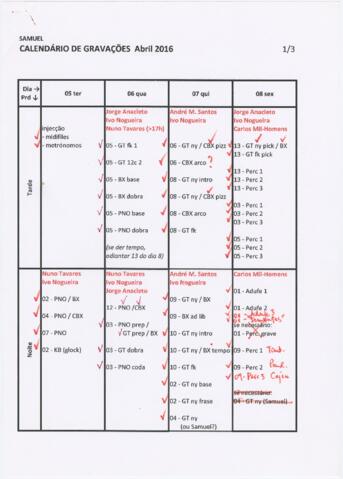 SAMUEL
CALENDÁRIO DE GRAVAÇÕES Abril 2016
1/3
Dia →
Prd ↓
05 ter
06 qua
07 qui
08 sex
Tarde
injecção
- midifiles
- metrónomos
Jorge Anacleto
Ivo Nogueira
Nuno Tavares (>17h)
05 - GT fk 1
05 - GT 12c 2
05 - BX base
05 - BX dobra
05 - PNO base
05 - PNO dobra
(se der tempo,
adiantar 13 do dia 8)
André M. Santos
Ivo Nogueira
08 - GT ny / CBX pizz
06 - CBX arco ?
08 - GT ny intro
08 - CBX pizz
08 - CBX arco
08 - GT fk
Jorge Anacleto
Ivo Nogueira
Carlos Mil-Homens
13 - GT ny pick / BX
13 - GT fk pick
13 - Perc 1
13 - Perc 2
13 - Perc 3
03 - Perc 1
03 - Perc 2
03 - Perc 3
05 - Perc 1
05 - Perc 2
05 - Perc 3
Noite
Nuno Tavares
Ivo Nogueira
02 - PNO / BX
04 - PNO / CBX
07 - PNO
02 - KB (glock)
Nuno Tavares
Ivo Nogueira
Jorge Anacleto
12 - PNO /CBX
03 - PNO prep /
GT prep / BX
03 - GT dobra
03 - PNO coda
André M. Santos
Ivo Nogueira
09 - GT ny / BX
09 - BX ad lib
10 - GT ny intro
10 - GT ny / BX tempo
10 - GT fk
02 - GT ny base
02 - GT ny frase
04 - GT ny
(ou Samuel?)
Carlos Mil-Homens
01 - Adufe 1
01 - Adufe 2
se necessário:
01 - Perc grave
09 - Perc 1
09 - Perc 2
09 - Perc 3 Cajon
se necessário:
04 - GT ny (Samuel)